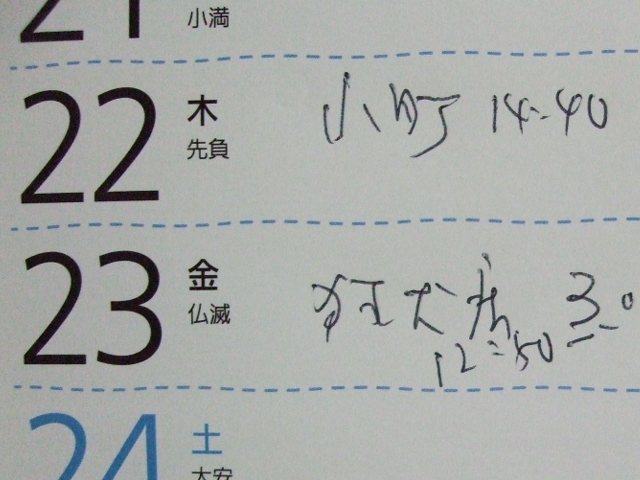 21
小満
22 木 小町 14:40
先負
23 金 狂犬病 3.0
仏滅 12:50
24 土
大安